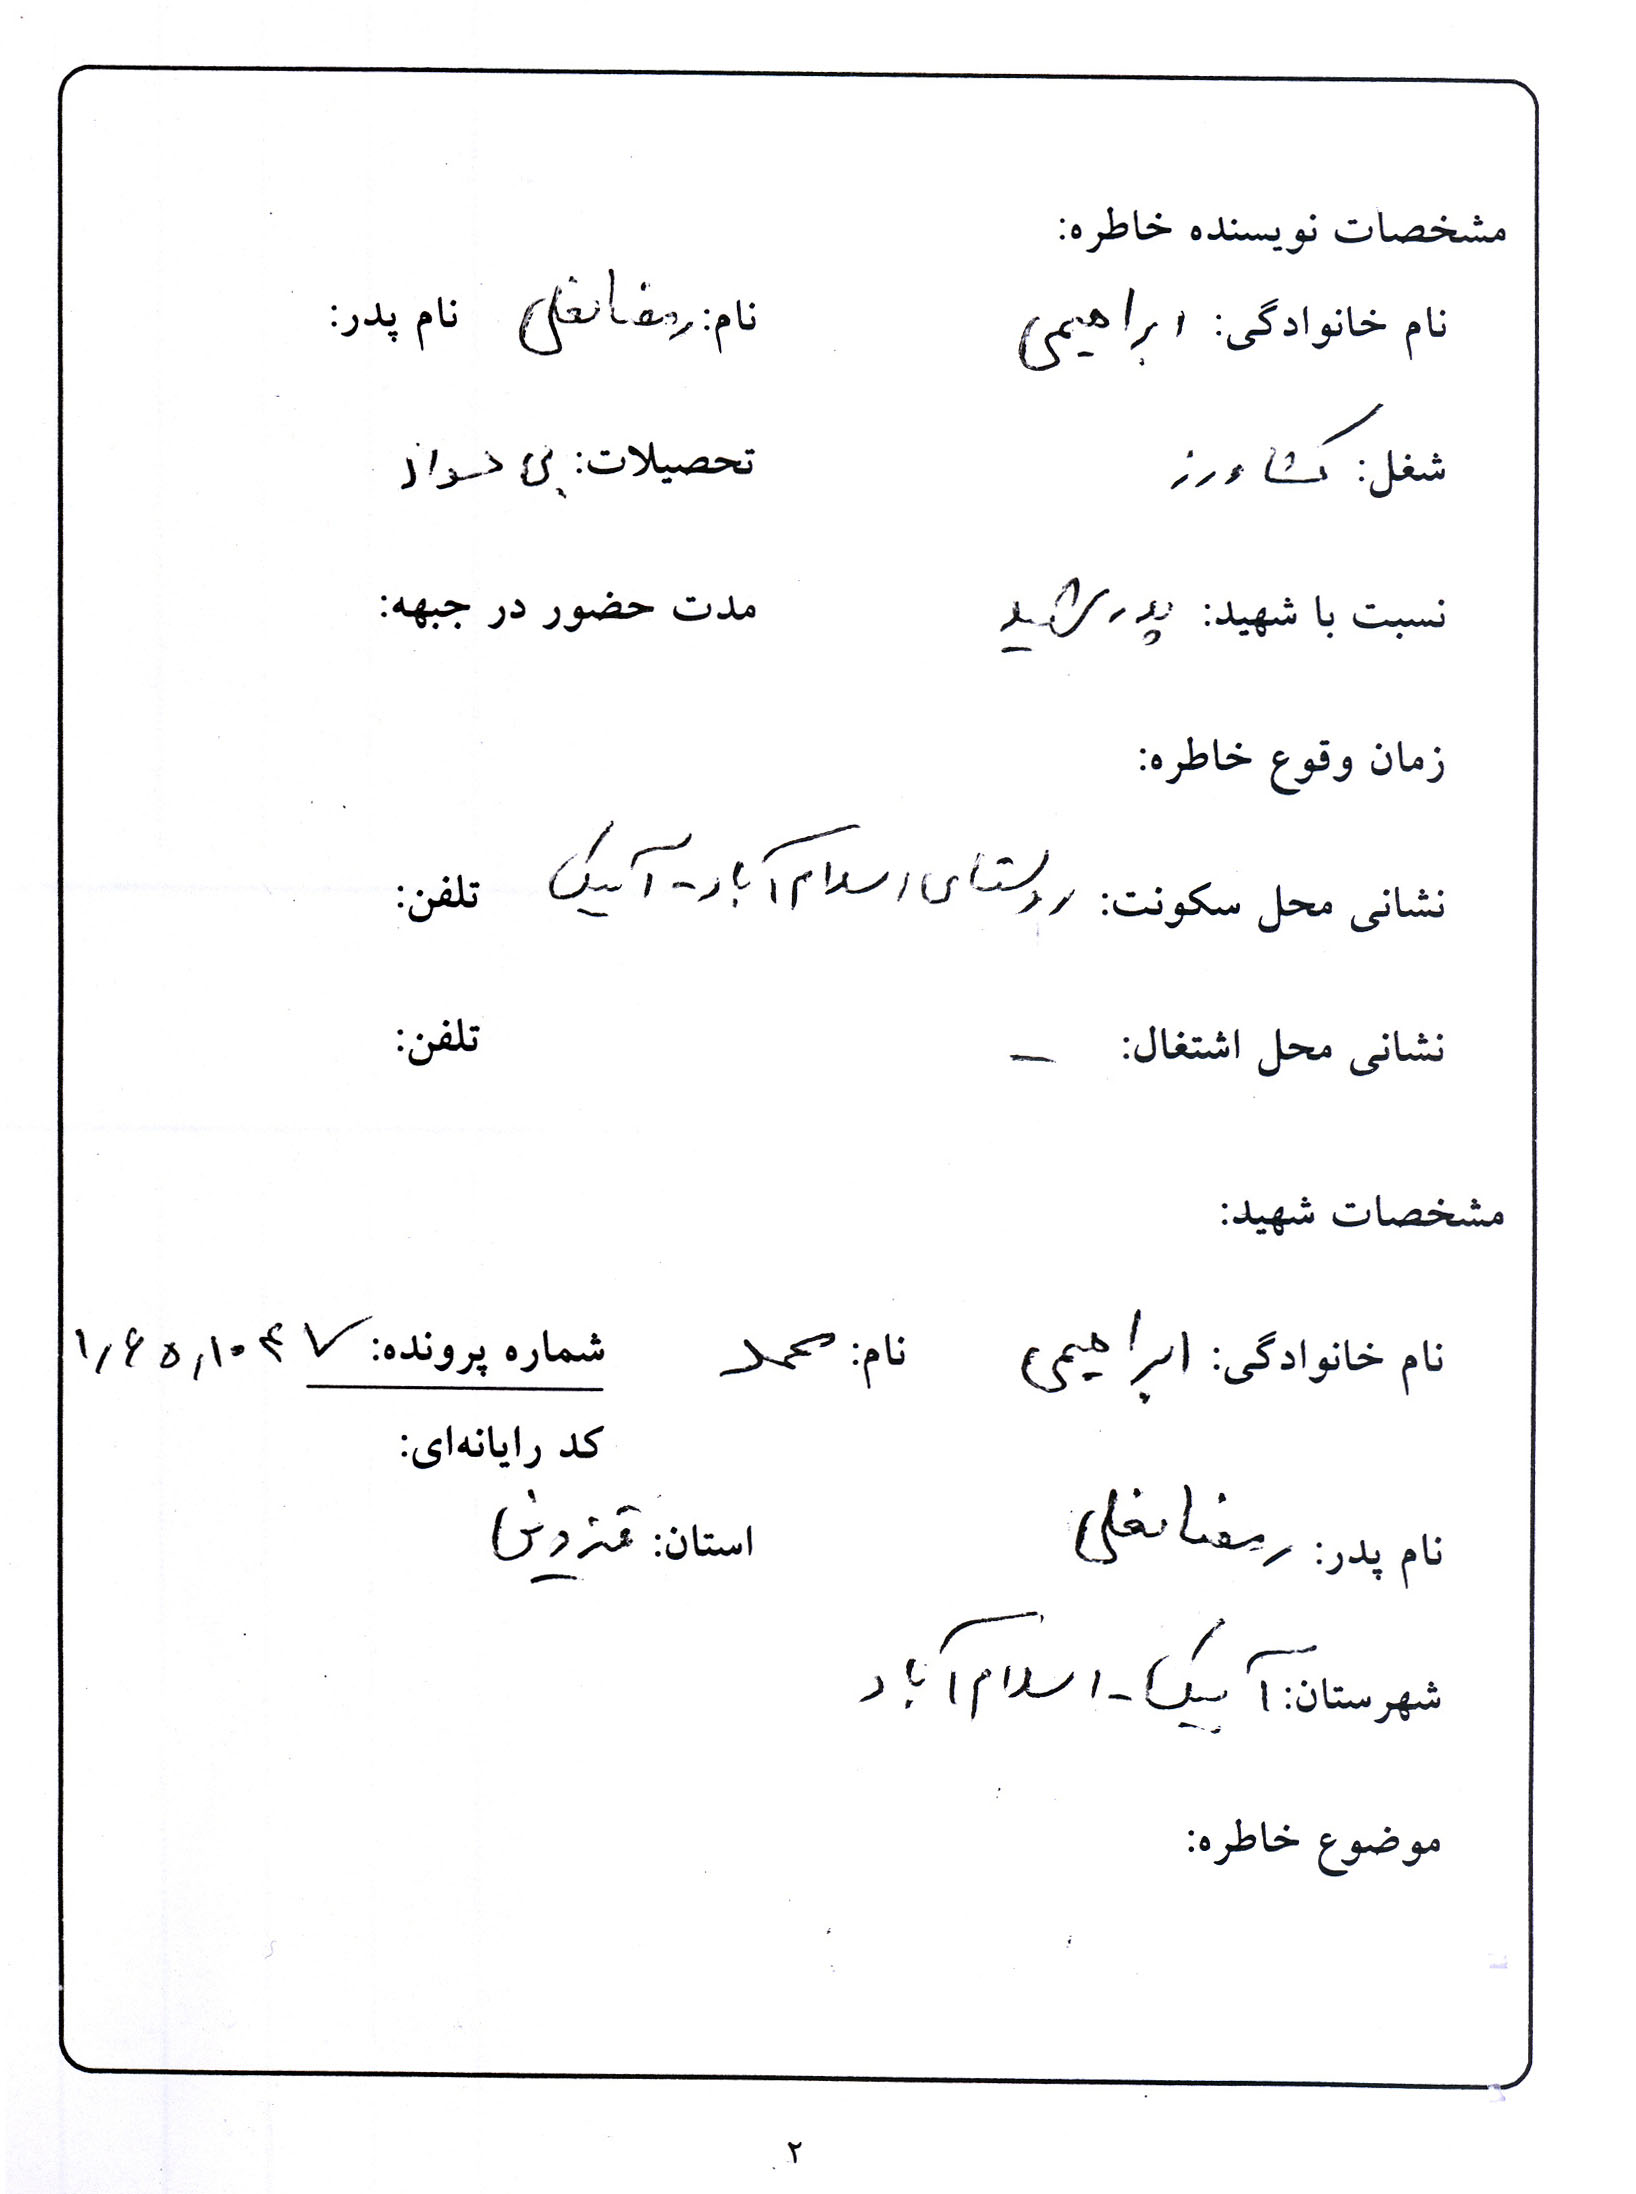 مشخصات نویسنده خاطره:
نام خانوادگی: ابراهیمی نام: رمضانعلی نام پدر:
شغل: کشاورز تحصیلات: بی سواد
نسبت با شهید: پدر شهید مدت حضور در جبهه:
زمان وقوع خاطره:
نشانی محل سکونت: روستای اسلام آباد - آبیک تلفن:
نشانی محل اشتغال: – تلفن:
مشخصات شهید:
نام خانوادگی: ابراهیمی نام: محمد شماره پرونده:
کد رایانه‌ای:
نام پدر: رمضانعلی استان: قزوین
شهرستان: آبیک - اسلام آباد
موضوع خاطره:
۲